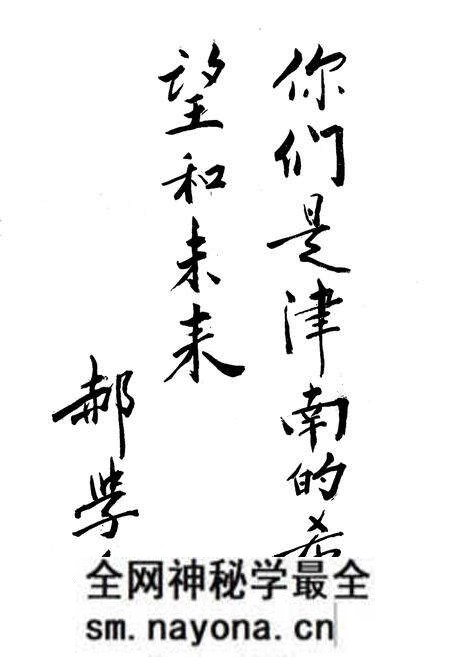 你们是津南的希
望和未来
郝学
全网神秘学最全
sm.nayona.cn